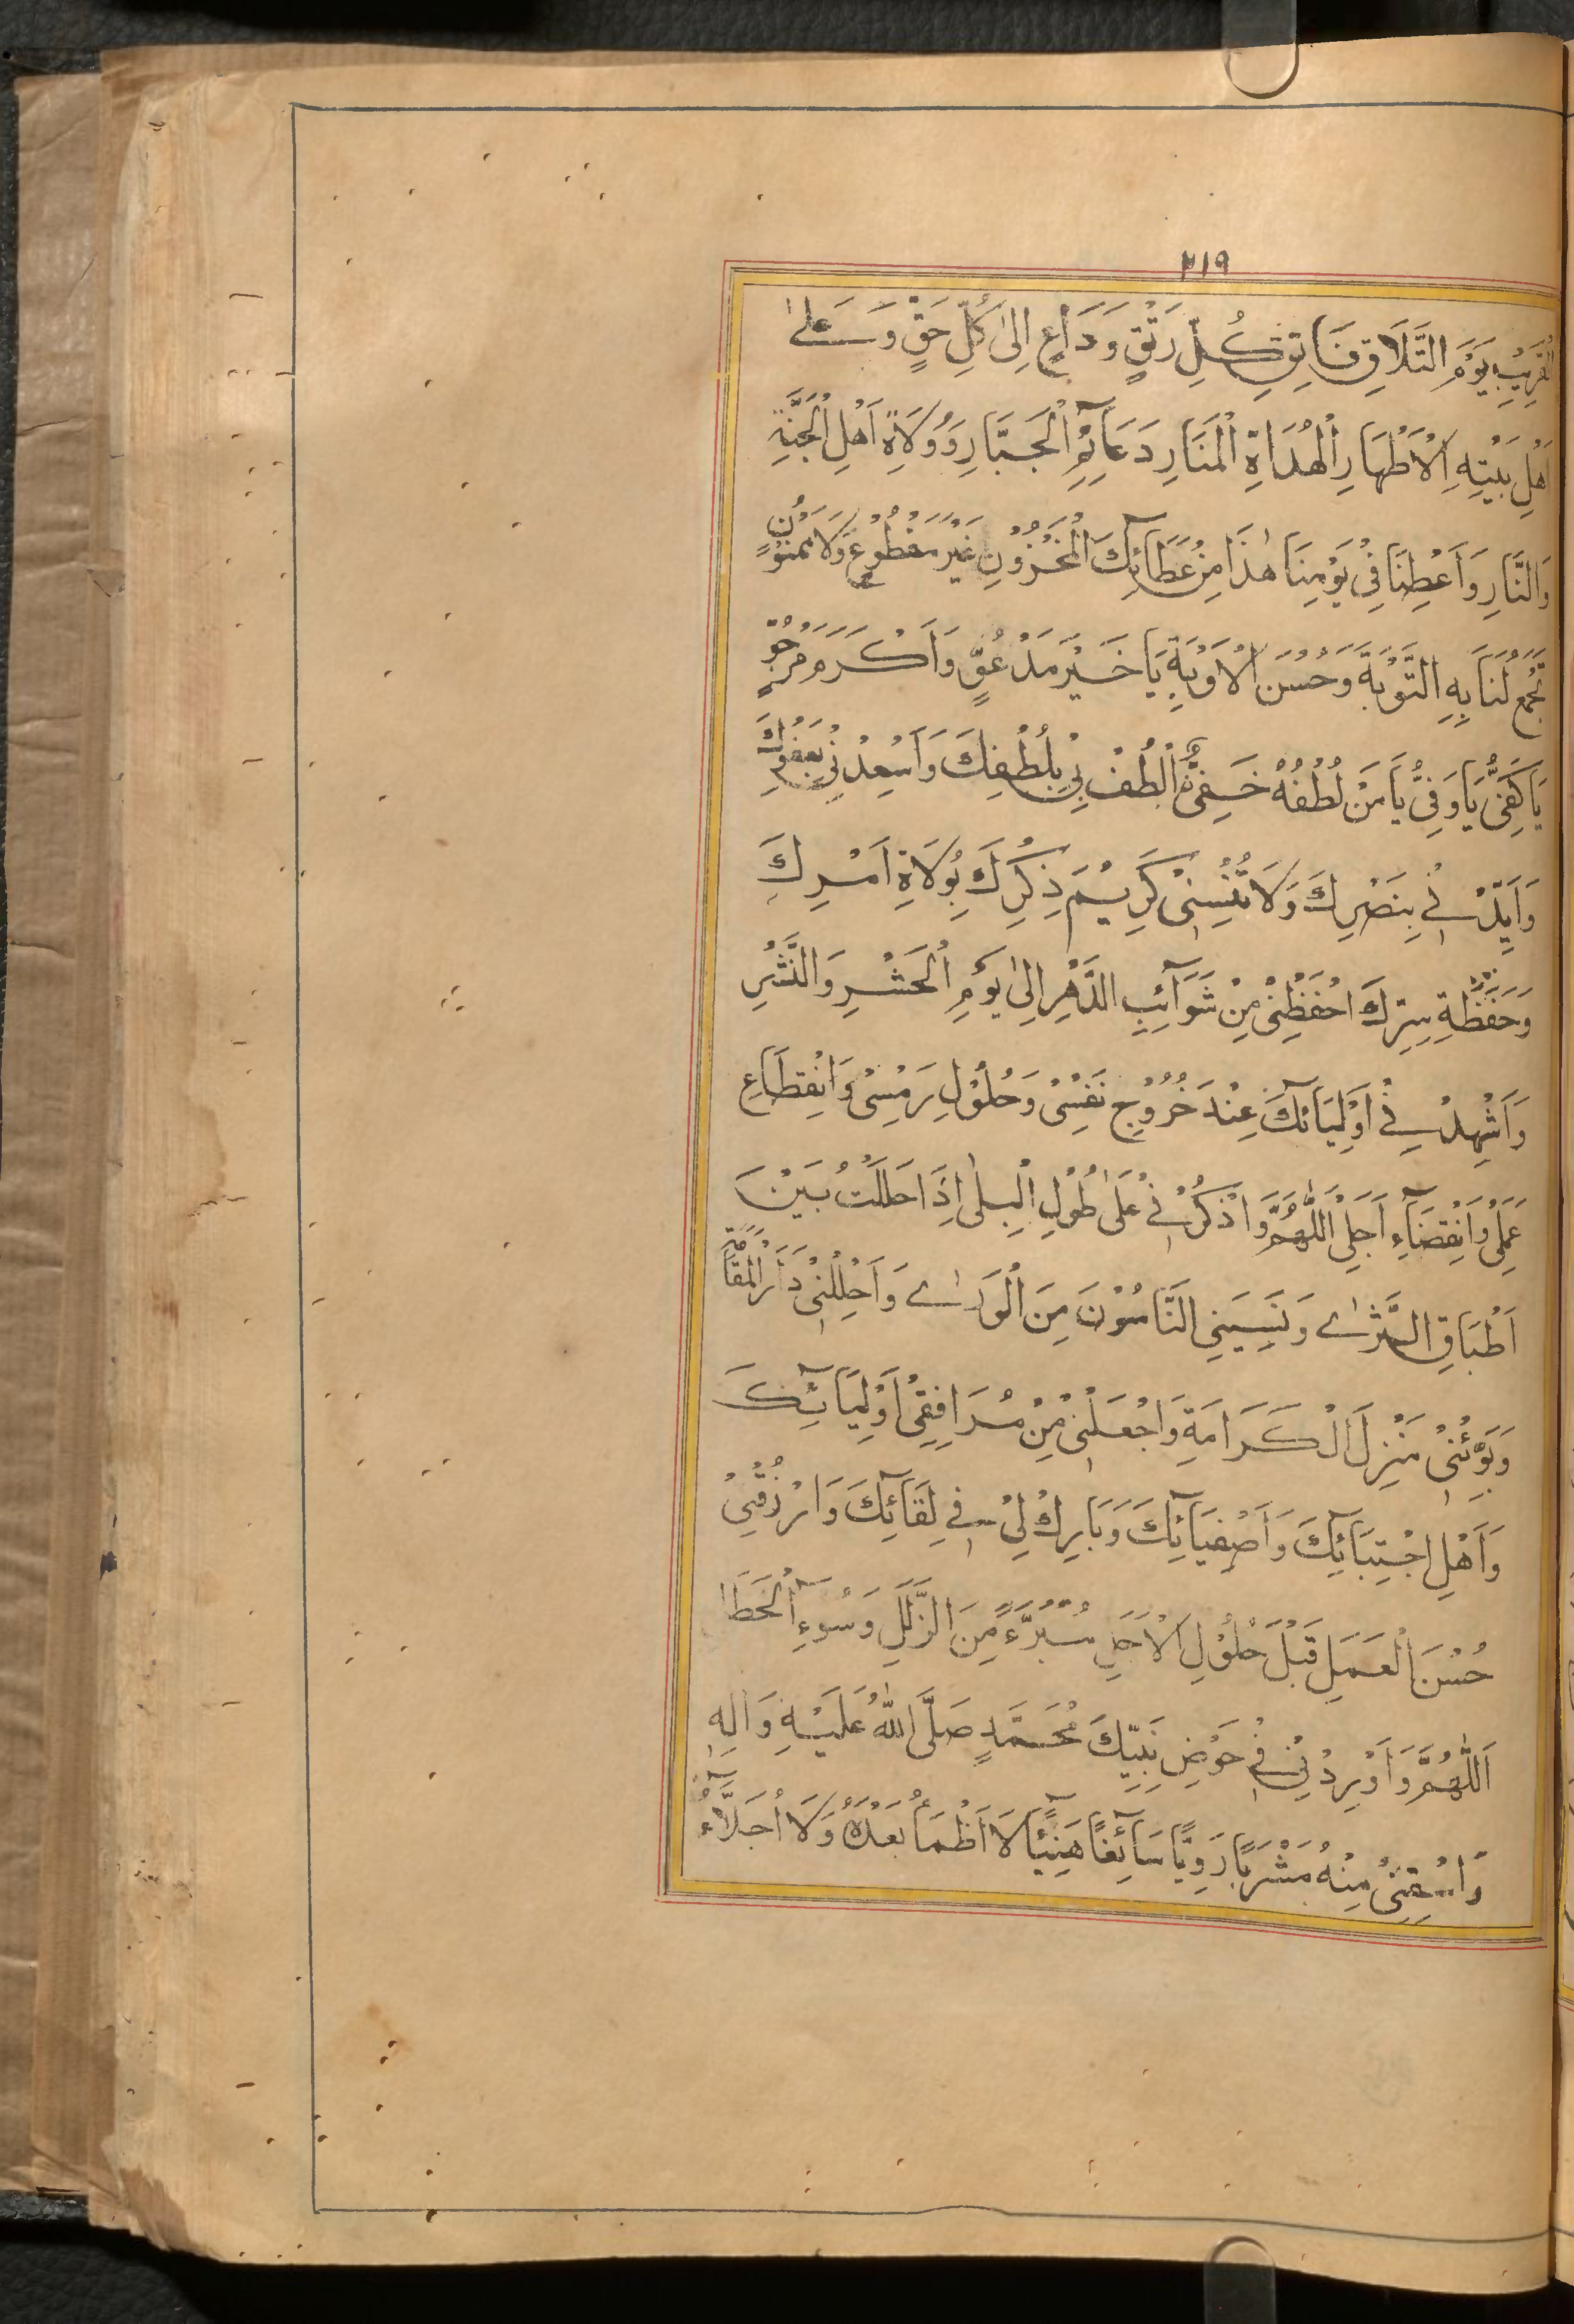 ٢١٩
الْقَرِيْبِ يَوْمَ التَّلَاقِ فَاتِقِ كُلِّ رَتْقٍ وَدَاعٍ اِلٰى كُلِّ حَقٍّ وَعَلىٰ
اَهْلِ بَيْتِهِ الْاَطْهَارِ الْهُدَاةِ الْمَنَارِ دَعَآئِمِ الْجَبَّارِ وَوُلَاةِ اَهْلِ الْجَنَّةِ
وَالنَّارِ وَاَعْطِنَا فِيْ يَوْمِنَا هٰذَا مِنْ عَطَآئِكَ الْمَخْزُوْنِ غَيْرَ مَقْطُوْعٍ وَلَا مَمْنُوْنٍ
تَجْمَعُ لَنَا بِهِ التَّوْبَةَ وَحُسْنَ الْاَوْبَةِ يَا خَيْرَ مَدْعُوٍّ وَاَكْرَمَ مَرْجُوٍّ
يَا كَفِيُّ يَا وَفِيُّ يَا مَنْ لُطْفُهُ خَفِيٌّ اُلْطُفْ بِيْ بِلُطْفِكَ وَاَسْعِدْنِيْ بِعَفْوِكَ
وَاَيِّدْنِيْ بِنَصْرِكَ وَلَا تُنْسِنِيْ كَرِيْمَ ذِكْرِكَ بِوُلَاةِ اَمْرِكَ
وَحَفَظَةِ سِرِّكَ احْفَظْنِيْ مِنْ شَوَآئِبِ الدَّهْرِ اِلٰى يَوْمِ الْحَشْرِ وَالنَّشْرِ
وَاَشْهِدْنِيْ اَوْلِيَآئَكَ عِنْدَ خُرُوْجِ نَفْسِيْ وَحُلُوْلِ رَمْسِيْ وَانْقِطَاعِ
عَمَلِيْ وَانْقِضَآءِ اَجَلِيْ اَللّٰهُمَّ وَاذْكُرْنِيْ عَلٰى طُوْلِ الْبِلٰى اِذَا حَلَلْتُ بَيْنَ
اَطْبَاقِ الثَّرٰى وَنَسِيَنِيَ النَّاسُوْنَ مِنَ الْوَرٰى وَاَحْلِلْنِيْ دَارَ الْمُقَامَةِ
وَبَوِّئْنِيْ مَنْزِلَ الْكَرَامَةِ وَاجْعَلْنِيْ مِنْ مُرَافِقِيْ اَوْلِيَآئِكَ
وَاَهْلِ اجْتِبَآئِكَ وَاَصْفِيَآئِكَ وَبَارِكْ لِيْ فِيْ لِقَآئِكَ وَارْزُقْنِيْ
حُسْنَ الْعَمَلِ قَبْلَ حُلُوْلِ الْاَجَلِ مُبَرَّءً مِنَ الزَّلَلِ وَسُوْءِ الْخَطَا
اَللّٰهُمَّ وَاَوْرِدْنِيْ فِيْ حَوْضِ نَبِيِّكَ مُحَمَّدٍ صَلَّى اللّٰهُ عَلَيْهِ وَاٰلِهِ
وَاسْقِنِيْ مِنْهُ مَشْرَبًا رَوِيًّا سَآئِغًا هَنِيْئًا لَا اَظْمَأُ بَعْدَهُ وَلَا اُحَلَّاءُ